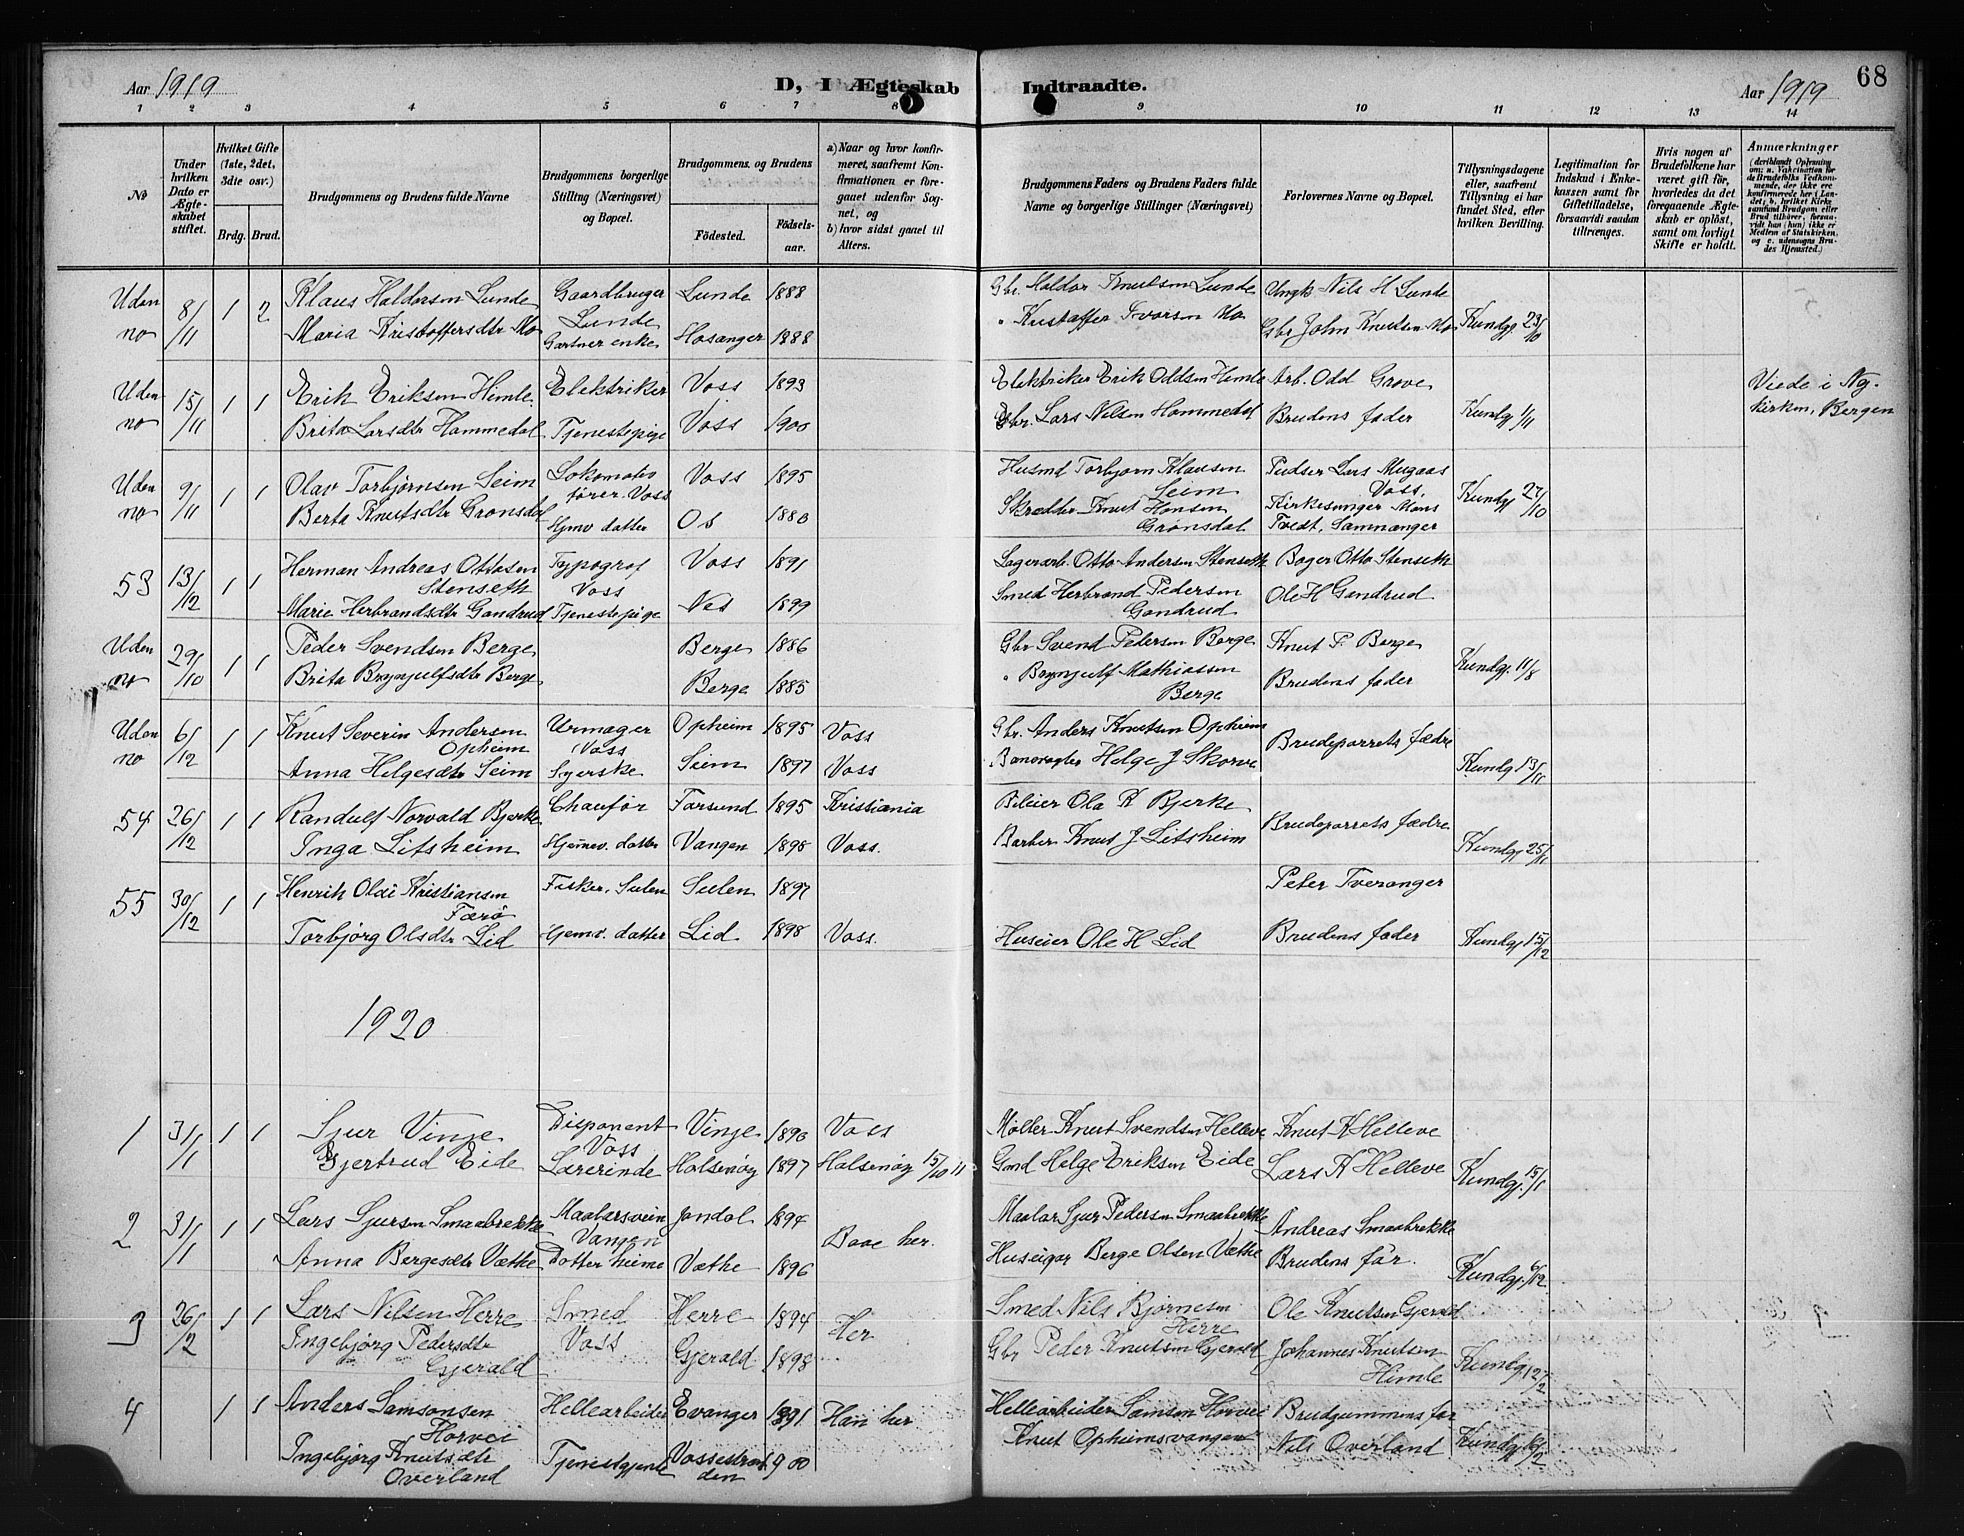 Aar 1919
D, I Ægteskab Indtraadte.
Aar 1919
68
1 2 3 4 5 6 7 8 9 10 11 12 13 14
No
Under hvilken Dato er Ægteskabet stiftet.
Hvilket Gifte (1ste, 2det, 3dte osv.)
Brdg. Brud.
Brudgommens og Brudens fulde Navne
Brudgommens borgerlige Stilling (Næringsvei) og Bopæl.
Brudgommens. og Brudens
Födested.
Födselsaar.
a) Naar og hvor konfirmeret, saafremt Konfirmationen er foregaaet udenfor Sognet, og
b) hvor sidst gaaet til Alters.
Brudgommens Faders og Brudens Faders fulde Navne og borgerlige Stillinger (Næringsvei)
Forlovernes Navne og Bopæl.
Tillysningsdagene eller, saafremt Tillysning ei har fundet Sted, efter hvilken Bevilling.
Legitimation for Indskud i Enkekassen samt for Giftetilladelse, forsaavidt saadan tiltrænges.
Hvis nogen af Brudefolkene har været gift för, hvorledes da det foregaaende Ægteskab er oplöst, samt om lovligt Skifte er holdt.
Anmærkninger
Uden no 8/11 1 2 Klaus Haldorsen Lunde Gaardbruger Lunde Lunde 1888 Gbr. Haldor Knutsen Lunde Ungk Nils H Lunde
Maria Kristoffersdtr Mo Gartner enke Hosanger 1888 " Kristoffer Ivarsen Mo Gbr John Knutsen Mo Kundgj 23/10
Uden no 15/11 1 1 Erik Eriksen Himle Elektriker Voss 1893 Elektriker Erik Oddsen Himle Arb. Odd Grove Viede i Ny-
Brita Larsdtr Hammedal Tjenestepige Voss 1900 Gbr. Lars Nilsen Hammedal Brudens fader Kundgj 1/11 kirken, Bergen
Uden no 9/11 1 1 Olav Torbjørnsen Seim Lokomotivfører. Voss Voss 1895 Husmd Torbjørn Klausen Seim Pudser Lars Mugaas Voss.
Berta Knutsdtr Grønsdal Hjmv datter Os 1880 Skrædder Knut Hansen Grønsdal Kirkesanger Mons Tvedt, Samnanger Kundgj 27/10
53 13/12 1 1 Herman Andreas Ottosen Stenseth Typograf Voss Voss 1891 Lagerarb. Otto Andersen Stenseth Bager Otto Stenseth
Marie Herbrandsdtr Gandrud Tjenestepige Nes 1899 Smed Herbrand Pedersen Gandrud Ole H Gandrud
Uden no 29/10 1 1 Peder Svendsen Berge Berge 1886 Gbr Svend Pedersen Berge Knut P. Berge
Brita Brynjulfsdtr Berge Berge 1885 " Brynjulf Mathiassen Berge Brudens fader Kundgj. 11/8
Uden no 6/12 1 1 Knut Severin Andersen Opheim Urmager Voss Opheim 1895 Voss Gbr. Anders Knutsen Opheim Brudeparrets fædre
Anna Helgesdtr Seim Syerske Seim 1897 Voss Banevagter Helge J Skorve Kundgj 13/11
54 26/12 1 1 Randulf Norvald Bjerke Chauför Farsund 1895 Kristiania Bileier Ola K Bjerke Brudeparrets fædre
Inga Litsheim Hjemv. datter Vangen 1898 Voss. Barber Knut J Litsheim Kundgj 25/11
55 30/12 1 1 Henrik Olai Kristiansen Færö Fisker, Sulen Sulen 1897 Peter Tveranger
Torbjörg Olsdtr Lid Hjemv. datter Lid 1898 Voss. Huseier Ole H Lid Brudens fader Kundgj 15/12
1920
1 31/1 1 1 Sjur Vinje Disponent Voss Vinje 1890 Voss Møller Knut Svendsen Helleve Knut K Helleve
Gjertrud Eide Lærerinde Halsnöy 1897 Halsnöy 15/10 11 Gmd Helge Eriksen Eide Lars K Helleve Kundgj. 15/1
2 31/1 1 1 Lars Sjursen Smaabrekke Maalarsvein Vangen Jondal 1894 Baae her. Maalar Sjur Pedersen Smaabrekke Andreas Smaabrekke
Anna Bergesdtr Væthe Dotter heime Væthe 1896 Huseigar Berge Olsen Væthe Brudens får. Kundgj. 6/12
3 26/2 1 1 Lars Nilsen Herre Smed Voss Herre 1894 Her Smed Nils Bjørnesen Herre Ole Knutsen Gjerald
Ingebjørg Pedersdtr Gjerald Gjerald 1898 Gbr Peder Knutsen Gjerald Johannes Knutsen Himle Kundgj 12/2
4 1 1 Anders Samsonsen Horvei Hellearbeider Evanger 1891 Han her Hellearbeider Samson Horvei Brudgummens far
Ingebjørg Knutsdtr Overland Tjenestgjente Vossestranden 1900 Knut Opheimsvangen Nils Overland Kundgj